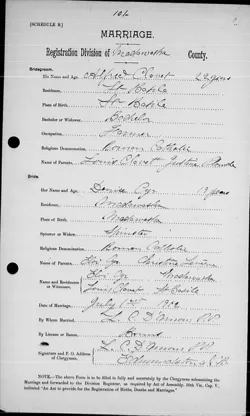 [SCHEDULE B.]
MARRIAGE.
Registration Division of Madawaska County.
Bridegroom.
His Name and Age— Alfred Clavet 22 years
Residence, St Basile
Place of Birth, St Basile
Bachelor or Widower, Bachelor
Occupation, Farmer
Religious Denomination, Roman Catholic
Name of Parents, Louis Clavet Justine
Bride.
Her Name and Age— Denise Cyr 19 years
Residence, Madawaska
Place of Birth, Madawaska
Spinster or Widow, Spinster
Religious Denomination, Roman Catholic
Name of Parents, Cyr Christine
Name and Residence of Witnesses, Cyr Madawaska
Louis Clavet St Basile
Date of Marriage, July
By Whom Married, L. C. D'Amour
By License or Banns, Banns
Signature and P. O. Address of Clergyman, L. C. D'Amour
Edmundston N.B.
NOTE.—The above Form is to be filled in fully and accurately by the Clergyman solemnizing the
Marriage and forwarded to the Division Registrar, as required by Act of Assembly, 50th Vic, Cap V.,
intituled "An Act to provide for the Registration of Births, Deaths and Marriages."